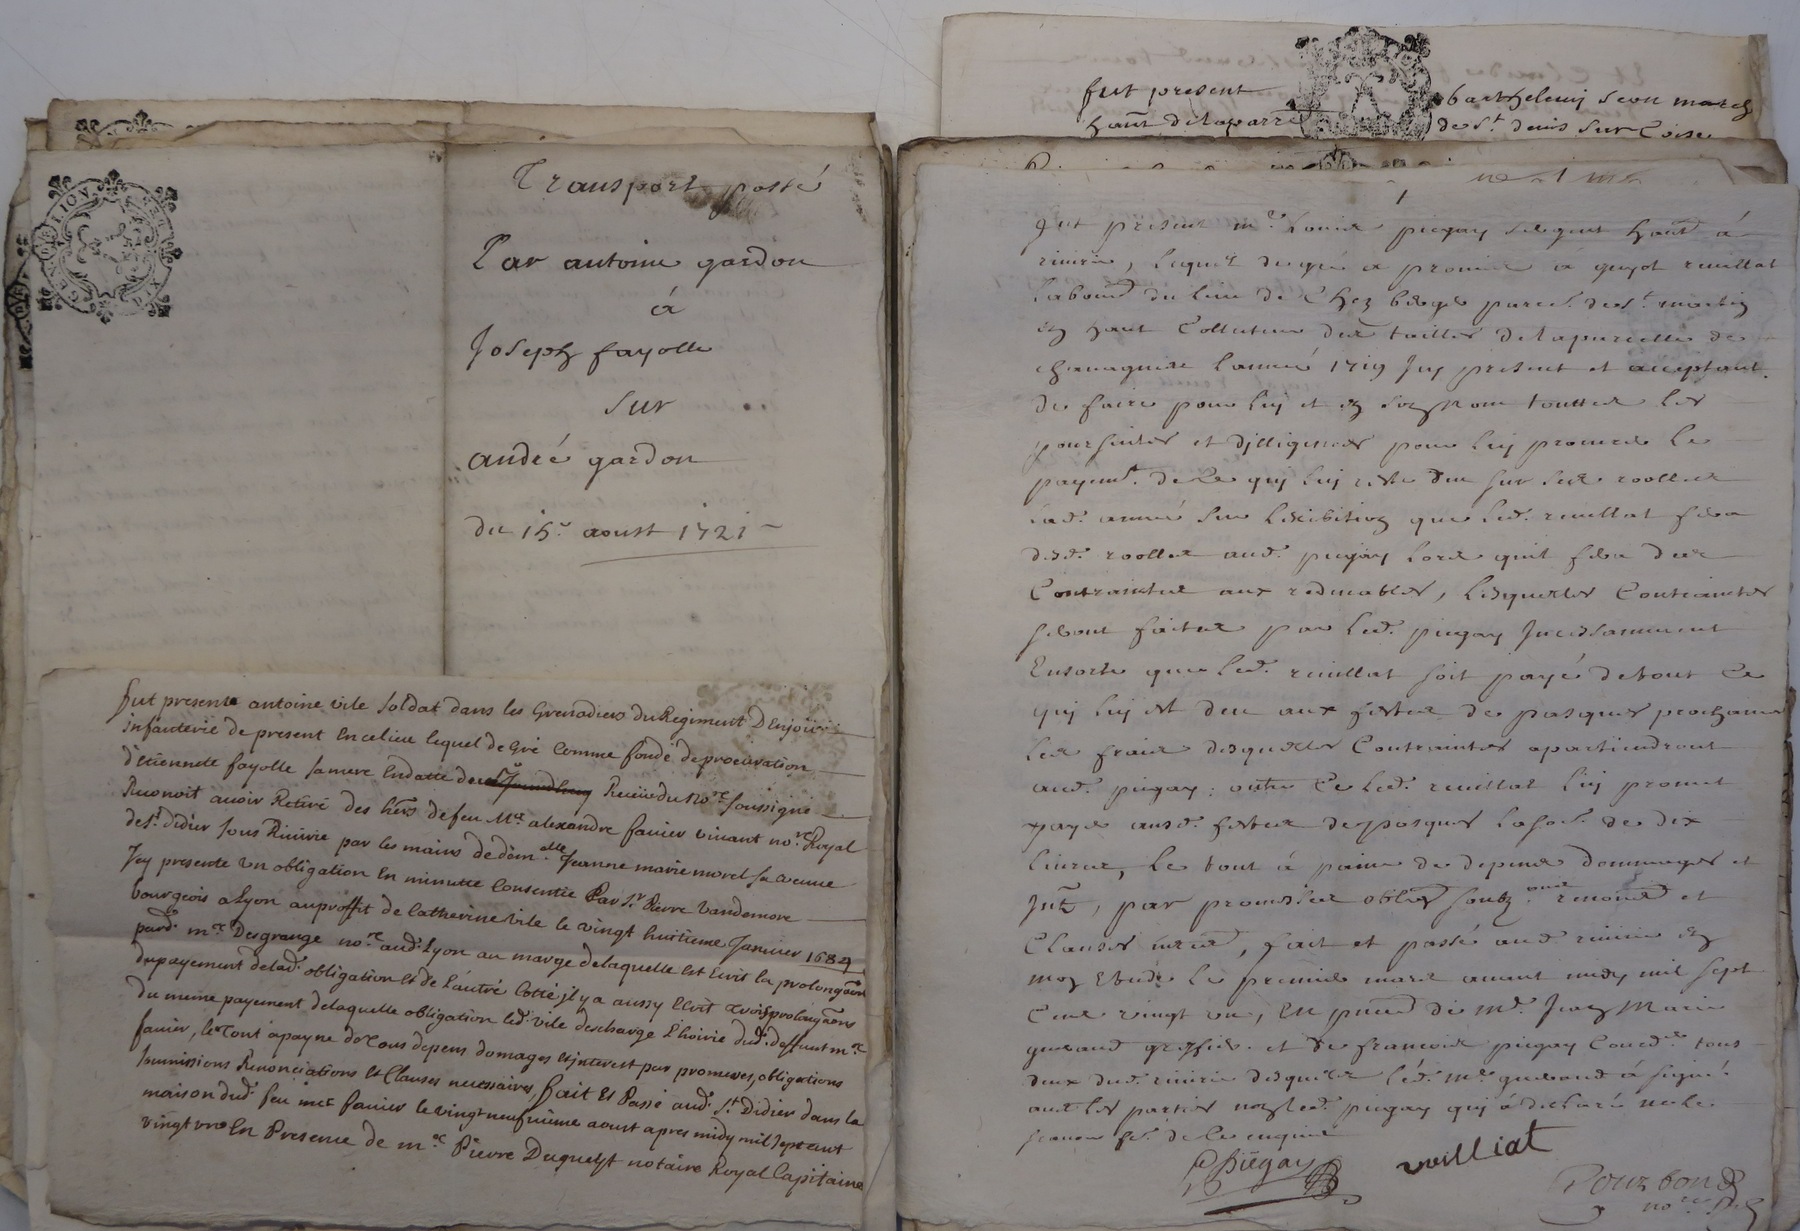 GENE LION
Transport passé
Par antoine gardon
á
Joseph fayolle
sur
andré gardon
du 15e aoust 1721
fut presente antoine vile soldat dans les Grenadiers du Regiment D'Enjoü
infanterie de present En ce lieu lequel de Gré Comme fondé de procuration
d'etiennete fayolle sa mere En datte du Receüe du No.re soussigné
Reconoit avoir Retiré des hers de feu Mre alexandre favier vivant no.re Royal
de St didier sous Riverie par les mains de dem.elle Jeanne marie morel sa veuve
Jcy presente un obligation En minutte Consentie Par Sr Pierre Vandemore
bourgeois a Lyon au proffit de Catherine vile le vingt huitieme Janvier 1684
pard. mre Desgrange no.re aud. Lyon au marge de laquelle Est Ecrit la prolongaon
du payement de lad. obligation Et de L'autre Cotté jl y a aussy Ecrit trois prolongaons
du meme payement de laquelle obligation led. vile descharge l'hoirie dud. deffunt mre
favier, le tout a payne de tous depens domages Et interest par promesses, obligations
soumissions Renonciations Et Clauses necessaires, fait Et Passé aud. St Didier dans la
maison dud. feu mre favier le vingt neufvieme aoust apres midy mil sept cent
vingt un En Presence de mre Pierre Duguelst notaire Royal Capitaine
fut present barthelemy seon march
hant de la parr. de St denis sur Coise
1
fut present mr Louis piegay sergent hant á
riverie, lequel de gré a promis a guyot reuillat
labour du lieu de Chez berger parois. de St martin
en haut Collecteur des tailles de la parcelle de
chauagnieu l'année 1719 Jcy present et acceptant
de faire pour luy et en son nom touttes les
poursuites et dilligences pour luy procurer le
payemt. de ce quy luy reste deu sur ses roolles
lad. année sur l'exibition que led. reuillat fera
desd. roolles aud. piegay lors quil fera des
Contraintes aux redeuables, lesquelles Contraintes
seront faites par led. piegay Jncessamment
En sorte que led. reuillat soit payé de tout Ce
quy luy est deu aux festes de pasques prochaines
les frais desquelles Contraintes apartiendront
aud. piegay: outre Ce led. reuillat luy promet
payer ausd. festes de pasques la so. de dix
liures, le tout á paine de depens dommages et
Jnt, par promesses oblig. soubz. renond et
Clauses necess, fait et passé aud. riverie En
mon Etude le premier mars avant midy mil sept
Cens vingt un, En pnce de mr. Jean Marie
gueraud greffier. et de francois piegay Cord. tous
deux dud. riverie desquels led. mr. gueraud á signé
auec les parties non led. piegay quy á declaré ne le
scauoir fe. de ce enquis
Piegay
reuilliat
Pourbon
no.re